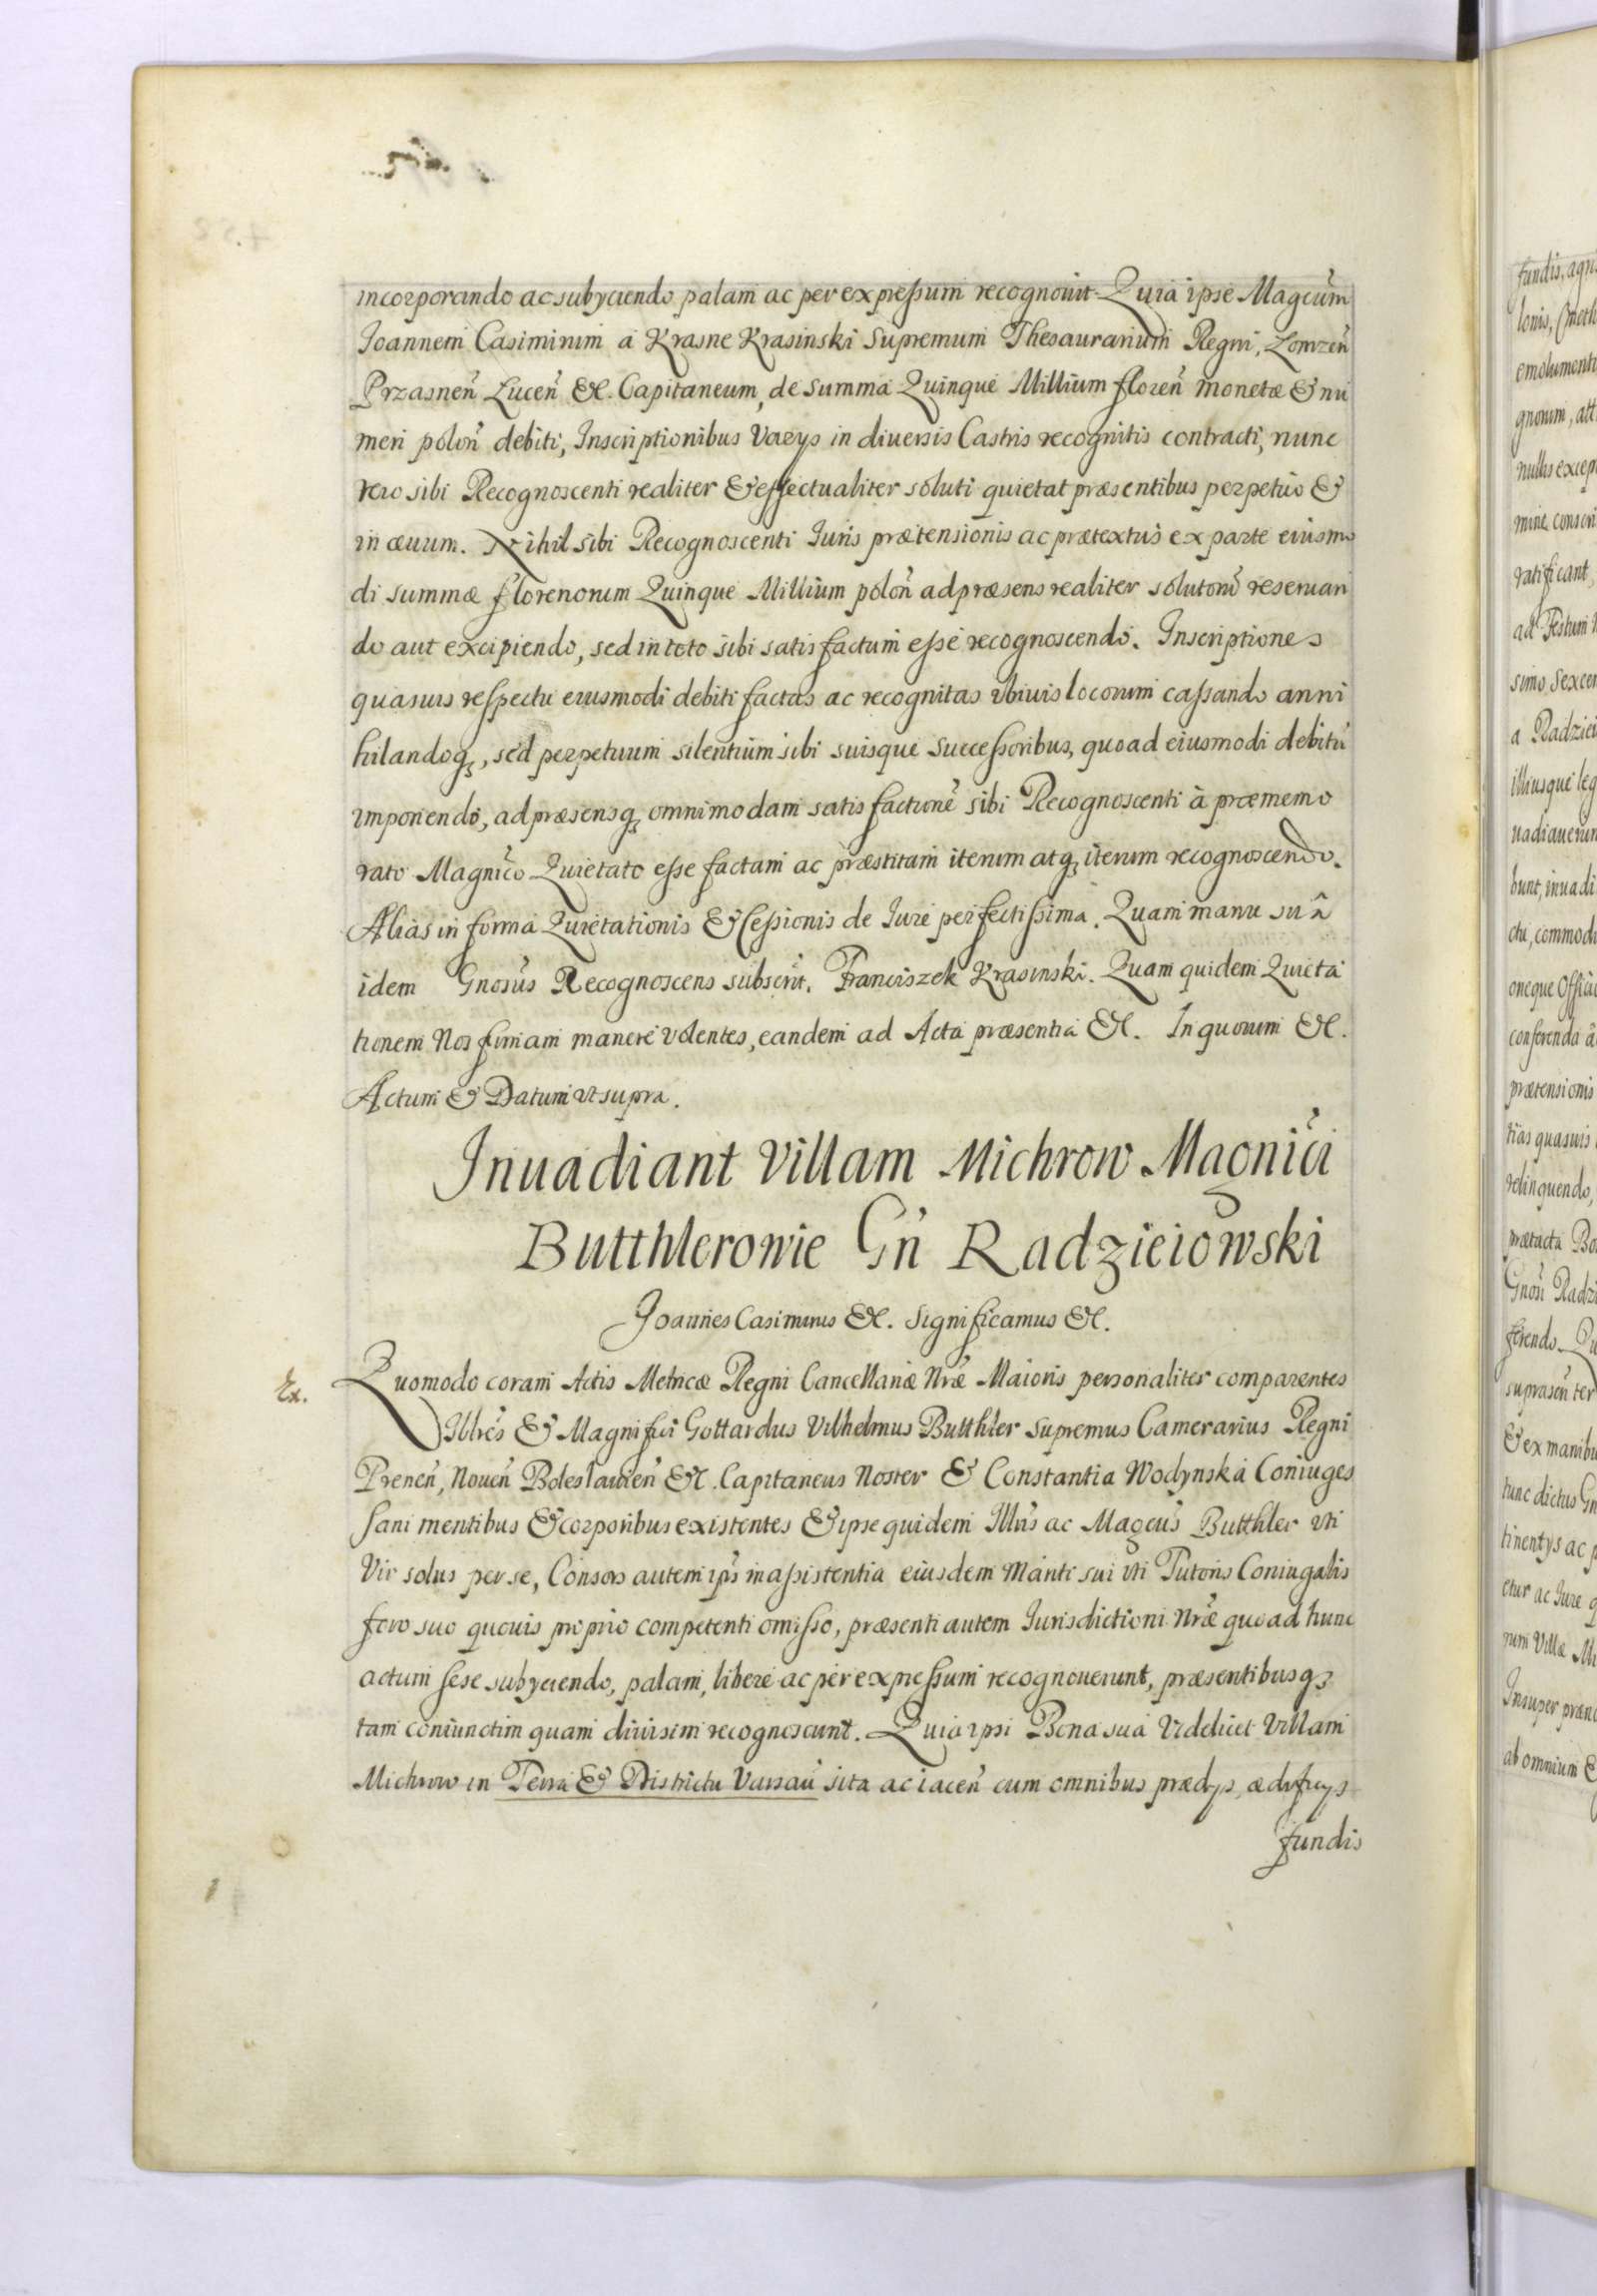 incorporando ac subyciendo palam ac per expressum recognouit. Quia ipse Magcum̃
Joannem Casimirum a Krasne Krasinski Supremum Thesaurarium Regni, Lomzeñ
Przasneñ Luceñ &c. Capitaneum, de summa Quinque Millium floreñ monetæ & nu
meri poloñ debiti, Inscriptionibus Varys in diuersis Castris recognitis contracti, nunc
vero sibi Recognoscenti realiter & effectualiter soluti quietat præsentibus perpetuo &
in æuum. Nihil sibi Recognoscenti Iuris prætensionis ac prætextus ex parte eiusmo
di summæ florenorum Quinque Millium poloñ ad præsens realiter solutorũ reseruan
do aut excipiendo, sed in toto sibi satisfactum esse recognoscendo. Inscriptiones
quasuis respectu eiusmodi debiti factas ac recognitas vbiuis locorum cassando anni
hilandoq₃, sed perpetuum silentium sibi suisque successoribus, quoad eiusmodi debitũ
imponendo, ad præsensq₃ omnimodam satisfactionẽ sibi Recognoscenti à præmemo
rato Magnico Quietato esse factam ac præstitam iterum atq₃ iterum recognoscendo.
Alias in forma Quietationis & Cessionis de Iure perfectissima. Quam manu suâ
idem Gnosus Recognoscens subscrit. Franciszek Krasinski. Quam quidem Quieta
tionem Nos firmam manere volentes, eandem ad Acta præsentia &c. In quorum &c.
Actum & Datum vt supra.
Inuadiant Villam Michrow Magnici
Butthlerowie Gñ Radzieiowski
Joannes Casimirus &c. Significamus &c.
Ex.
Quomodo coram Actis Metricæ Regni Cancellariæ Nræ Maioris personaliter comparentes
Illres & Magnifici Gottardus Vilhelmus Butthler Supremus Camerarius Regni
Preneñ, Noueñ Boleslauieñ &c. Capitaneus Noster & Constantia Wodynska Coniuges
sani mentibus & corporibus existentes & ipse quidem Illris ac Magcus Butthler vti
Vir solus per se, Consors autem ipsius in assistentia eiusdem Mariti sui vti Tutoris Coniugalis
foro suo quouis proprio competenti omisso, præsenti autem Iurisdictioni Nræ quoad hunc
actum sese subyciendo, palam, libere ac per expressum recognouerunt, præsentibusq₃
tam coniunctim quam diuisim recognoscunt. Quia ipsi Bona sua Videlicet Villam
Michrow in Terra & Districtu Varsau̇ sita ac iaceñ cum omnibus prædys, ædificys
fundis